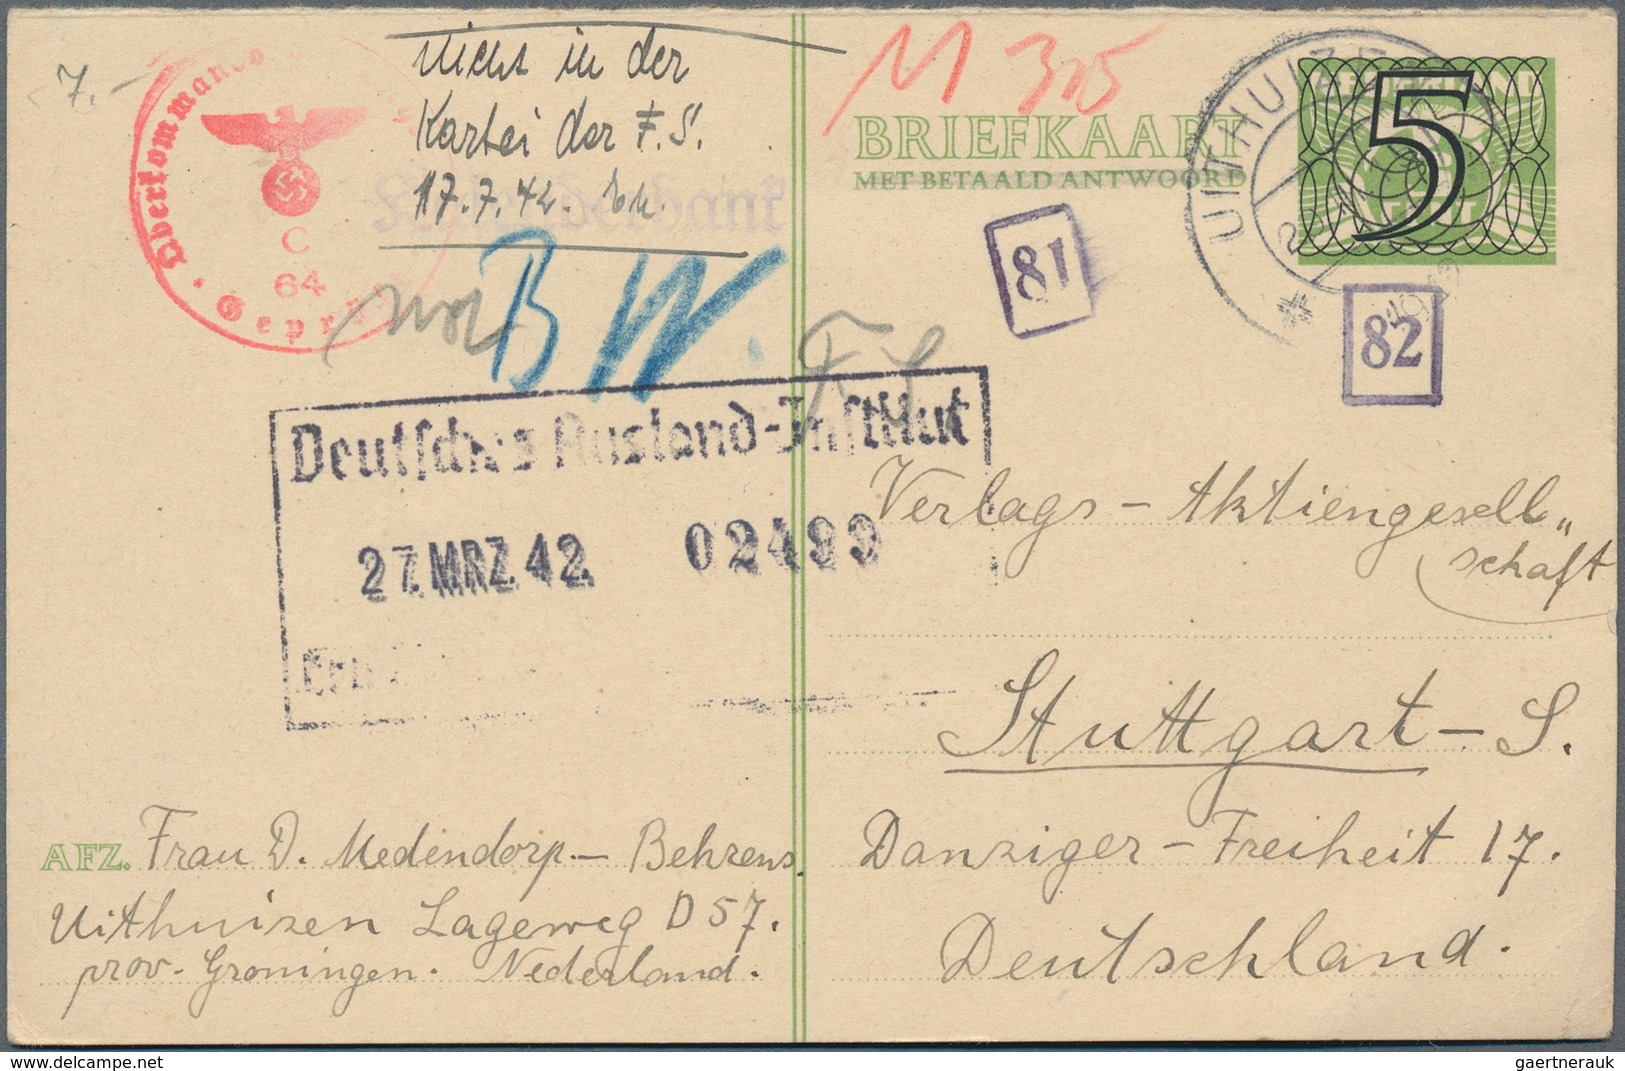 7.-
Oberkommando
C
64
Geprüft
Nicht in der
Kartei der F. S.
17. 7. 42.
M 315
BRIEFKAART
MET BETAALD ANTWOORD
UITHUIZEN
5
81
82
B W.
F S
Deutsches Ausland-Institut
27. MRZ. 42. 02499
Verlags - Aktiengesell„
schaft
Stuttgart - S.
Danziger - Freiheit 17.
Deutschland.
AFZ. Frau D. Medendorp - Behrens.
Uithuizen Lageweg D 57.
prov. Groningen. Nederland.
www.delcampe.net
gaertnerauk